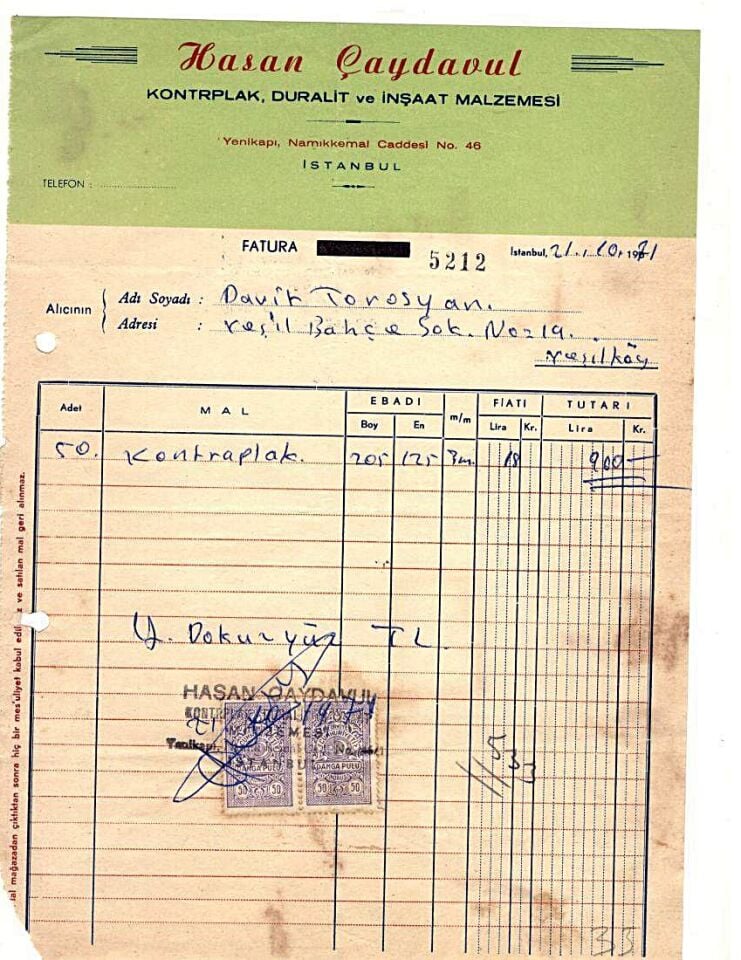 Hasan Çaydavul
KONTRPLAK, DURALİT ve İNŞAAT MALZEMESİ
Yenikapı, Namıkkemal Caddesi No. 46
İSTANBUL
TELEFON :
FATURA 5212 İstanbul, 21.10.1971
Alıcının
Adı Soyadı : Davit Torosyan.
Adresi : Yeşil Bahçe Sok. No=19.
Yeşilköy
Adet MAL EBADI m/m FİATI TUTARI
Boy En Lira Kr. Lira Kr.
50. Kontraplak. 205 125 3 m. 18 900 —
Y. Dokuzyüz TL.
HASAN ÇAYDAVUL
21 10 1971
Yenikapı, No. 46/1
İSTANBUL
DAMGA PULU DAMGA PULU
50 50 50 50
533
35
mağazadan çıktıktan sonra hiç bir mes'uliyet kabul ve satılan mal geri alınmaz.